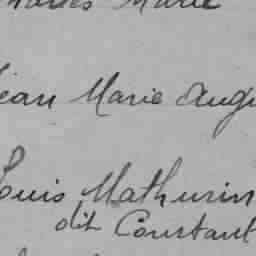 Marie
Jean Marie Augu
Louis Mathurin
dit Constant